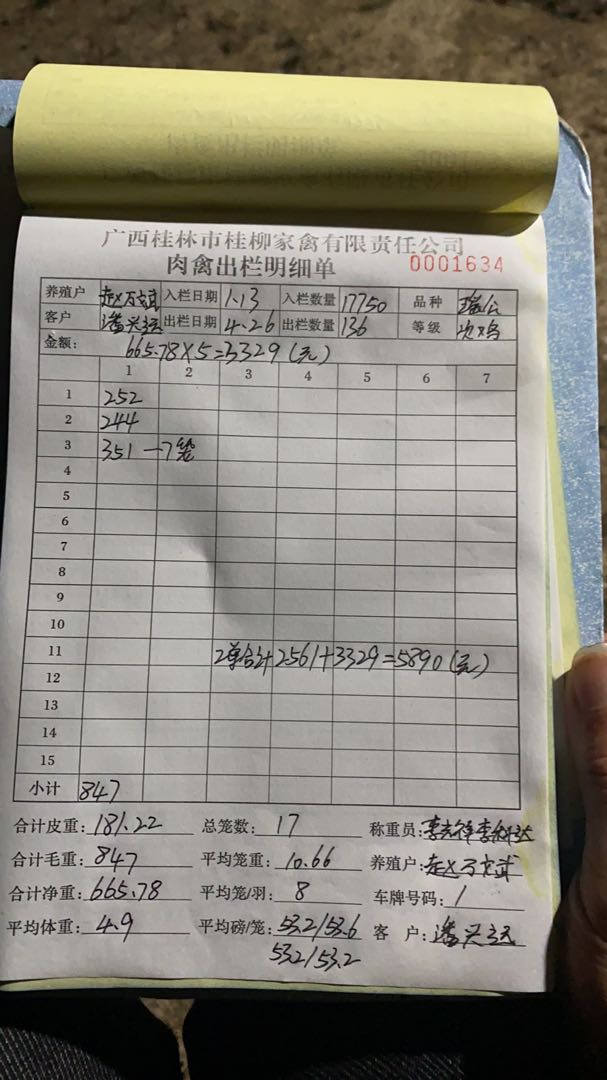 广西桂林市桂柳家禽有限责任公司
肉禽出栏明细单 0001634
养殖户 赵万武 入栏日期 1.13 入栏数量 17750 品种 瑶公
客户 潘兴 出栏日期 4.26 出栏数量 136 等级 次鸡
金额: 665.78×5=3329(元)
1 2 3 4 5 6 7
1 252
2 244
3 351 一7袋
4
5
6
7
8
9
10
11 2单合计2561+3329=5890(元)
12
13
14
15
小计 847
合计皮重: 181.22 总笼数: 17 称重员: 李
合计毛重: 847 平均笼重: 10.66 养殖户: 赵万武
合计净重: 665.78 平均笼/羽: 8 车牌号码: 1
平均体重: 4.9 平均磅/笼: 53.2/53.6 客 户: 潘兴
53.2/53.2